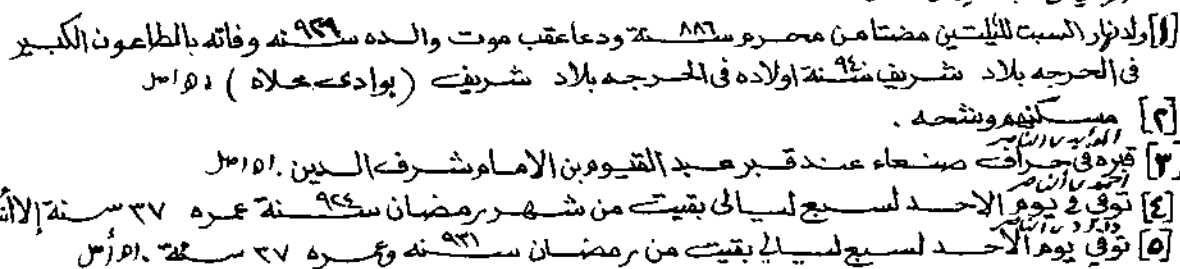 [١] ولد نهار السبت لليلتين مضتا من محرم سنة ٨٨٦ ودعا عقب موت والده سنه ٩٢٩ وفاته بالطاعون الكبير
في الحرجه بلاد شريف سنة ٩٤٠ اولاده في الحرجه بلاد شريف (بوادى محلاه) اه اصل
[٢] مسكنهم وشحه .
المؤيد بن الناصر
[٣] قبره في جراف صنعاء عند قبر عبد القيوم بن الامام شرف الدين . اه اصل
أحمد بن الناصر
[٤] توفي في يوم الاحد لسبع ليالى بقيت من شهر رمضان سنة ٩٢٤ عمره ٣٧ سنة إلا
داود بن الناصر
[٥] توفي يوم الأحد لسبع ليالي بقيت من رمضان سنه ٩٣١ وعمره ٣٧ سنة . اه أصل